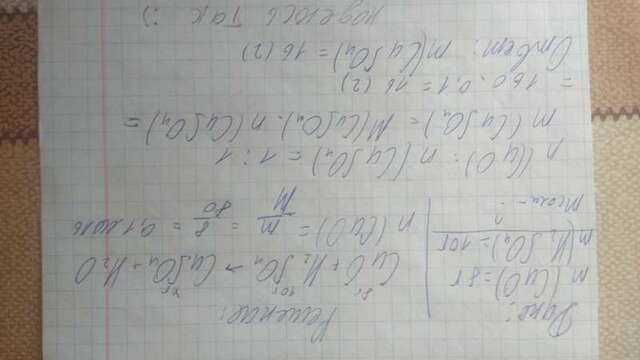 Дано:
m(CuO)=8г
m(H₂SO₄)=10г
m соли - ?
Решение:
8г 10г xг
CuO + H₂SO₄ → CuSO₄ + H₂O
n(CuO) = m/M = 8/80 = 0,1 моль
n(CuO) : n(CuSO₄) = 1:1
m(CuSO₄) = M(CuSO₄) · n(CuSO₄) =
= 160 · 0,1 = 16 (г)
Ответ: m(CuSO₄) = 16 (г)
надеюсь так :)